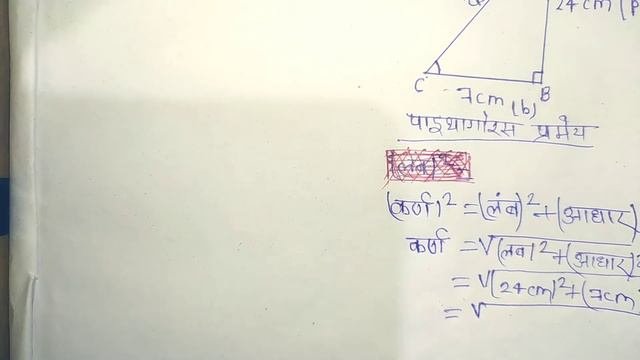 24cm (P
C
B
7cm (b)
पाइथागोरस प्रमेय
(कर्ण)² = (लंब)² + (आधार)
कर्ण = √(लंब)² + (आधार)²
= √(24cm)² + (7cm)
= √